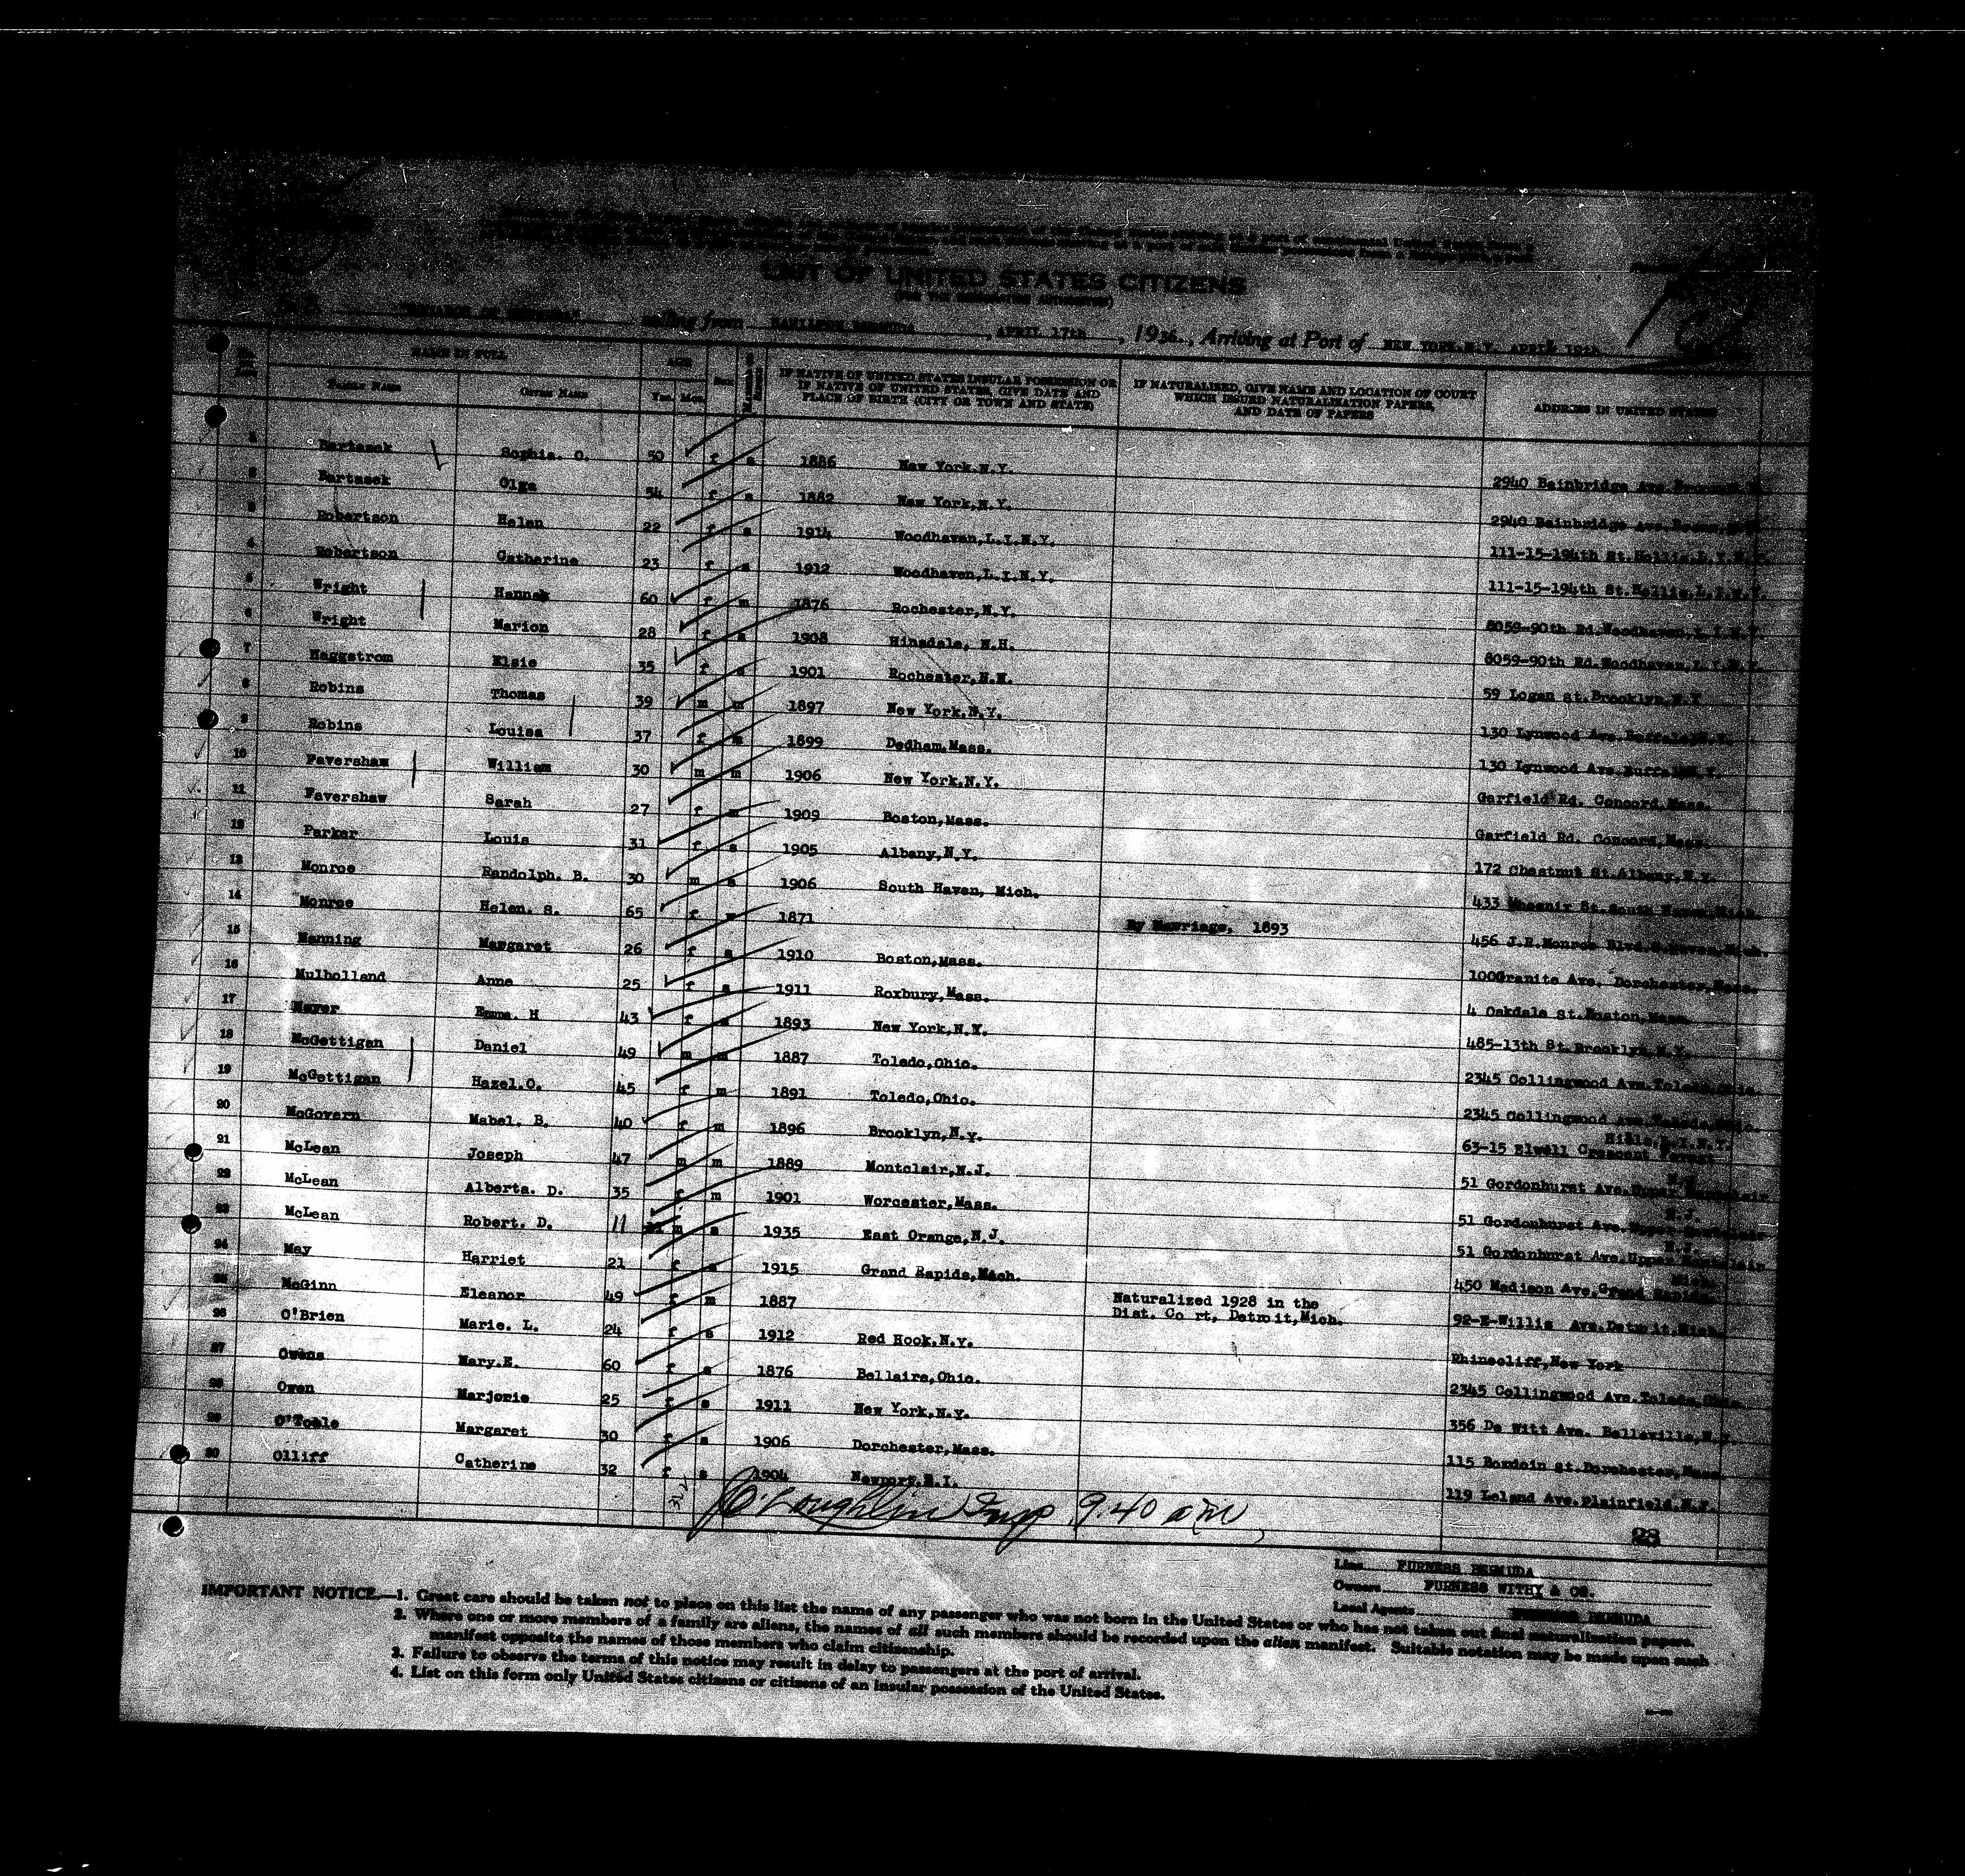 LIST OF UNITED STATES CITIZENS
(FOR THE IMMIGRATION AUTHORITIES)
sailing from HAMILTON BERMUDA, APRIL 17th, 1936, Arriving at Port of NEW YORK, N.Y. APRIL 19th
NAME IN FULL AGE
FAMILY NAME GIVEN NAME Yrs. Mos. SEX IF NATIVE OF UNITED STATES INSULAR POSSESSION OR IF NATIVE OF UNITED STATES, GIVE DATE AND PLACE OF BIRTH (CITY OR TOWN AND STATE) IF NATURALIZED, GIVE NAME AND LOCATION OF COURT WHICH ISSUED NATURALIZATION PAPERS, AND DATE OF PAPERS ADDRESS IN UNITED STATES
1 Bartasek Sophia. O. 50 f s 1886 New York.N.Y. 2940 Bainbridge Ave.
2 Bartasek Olga 54 f s 1882 New York,N.Y. 2940 Bainbridge Ave.
3 Robertson Helen 22 f s 1914 Woodhaven,L.I.N.Y. 111-15-194th St.Hollis,L.I.N.Y.
4 Robertson Catherine 23 f s 1912 Woodhaven,L.I.N.Y. 111-15-194th St.Hollis,L.I.N.Y.
5 Wright Hannah 60 f m 1876 Rochester,N.Y. 8059-90th Rd.Woodhaven,L.I.N.Y.
6 Wright Marion 28 f s 1908 Hinsdale, N.H. 8059-90th Rd.Woodhaven,L.I.N.Y.
7 Haggstrom Elsie 35 f 1901 59 Logan St.Brooklyn,N.Y
8 Robins Thomas 39 m m 1897 New York,N.Y. 130 Lynwood Ave.Buffalo,N.Y.
9 Robins Louisa 37 f 1899 Dedham,Mass. 130 Lynwood Ave.Buffalo,N.Y.
10 Favershaw William 30 m m 1906 New York,N.Y. Garfield Rd. Concord,Mass.
11 Favershaw Sarah 27 f m 1909 Boston,Mass. Garfield Rd. Concord,Mass.
12 Parker Louis 31 f s 1905 Albany,N.Y. 172 Chestnut St.Albany,N.Y.
13 Monroe Randolph. B. 30 m s 1906 South Haven, Mich. 433 Phoenix St.South Haven,Mich.
14 Monroe Helen. S. 65 f 1871 By Marriage, 1893 456 J.R.Monroe Blvd.
15 Manning Margaret 26 f s 1910 Boston,Mass. 100Granite Ave. Dorchester,Mass.
16 Mulholland Anne 25 f s 1911 Roxbury,Mass. 4 Oakdale St.Boston,Mass.
17 Meyer Emma. H 43 f 1893 New York,N.Y. 485-13th St.Brooklyn,N.Y.
18 McGettigan Daniel 49 m m 1887 Toledo,Ohio. 2345 Collingwood Ave.Toledo,Ohio.
19 McGettigan Hazel.O. 45 f m 1891 Toledo,Ohio. 2345 Collingwood Ave.Toledo,Ohio.
20 McGovern Mabel. B. 40 f m 1896 Brooklyn,N.Y. 63-15 Elwell Crescent Forest Hills,L.I.N.Y.
21 McLean Joseph 47 m m 1889 Montclair,N.J. 51 Gordonhurst Ave.Upper Montclair N.J.
22 McLean Alberta. D. 35 f m 1901 Worcester,Mass. 51 Gordonhurst Ave.Upper Montclair N.J.
23 McLean Robert. D. 11 m s 1935 East Orange,N.J. 51 Gordonhurst Ave.Upper Montclair N.J.
24 May Harriet 21 f s 1915 Grand Rapids,Mich. 450 Madison Ave.Grand Rapids Mich.
25 McGinn Eleanor 49 f m 1887 Naturalized 1928 in the Dist. Co rt, Detroit,Mich. 92-E-Willis Ave.Detroit,Mich.
26 O'Brien Marie. L. 24 f s 1912 Red Hook,N.Y. Rhinecliff,New York
27 Owens Mary.E. 60 f s 1876 Bellaire,Ohio. 2345 Collingwood Ave.Toledo,Ohio.
28 Owen Marjorie 25 f s 1911 New York,N.Y. 356 De Witt Ave. Belleville,
29 O'Toole Margaret 30 f s 1906 Dorchester,Mass. 115 Bowdoin St.Dorchester,Mass.
30 Olliff Catherine 32 f s 1904 Newport.R.I. 119 Leland Ave.Plainfield,
O'Loughlin Insp 9:40 am
28
Line FURNESS BERMUDA
Owners FURNESS WITHY & CO.
Local Agents FURNESS BERMUDA
IMPORTANT NOTICE.—1. Great care should be taken not to place on this list the name of any passenger who was not born in the United States or who has not taken out final naturalization papers.
2. Where one or more members of a family are aliens, the names of all such members should be recorded upon the alien manifest. Suitable notation may be made upon such
manifest opposite the names of those members who claim citizenship.
3. Failure to observe the terms of this notice may result in delay to passengers at the port of arrival.
4. List on this form only United States citizens or citizens of an insular possession of the United States.